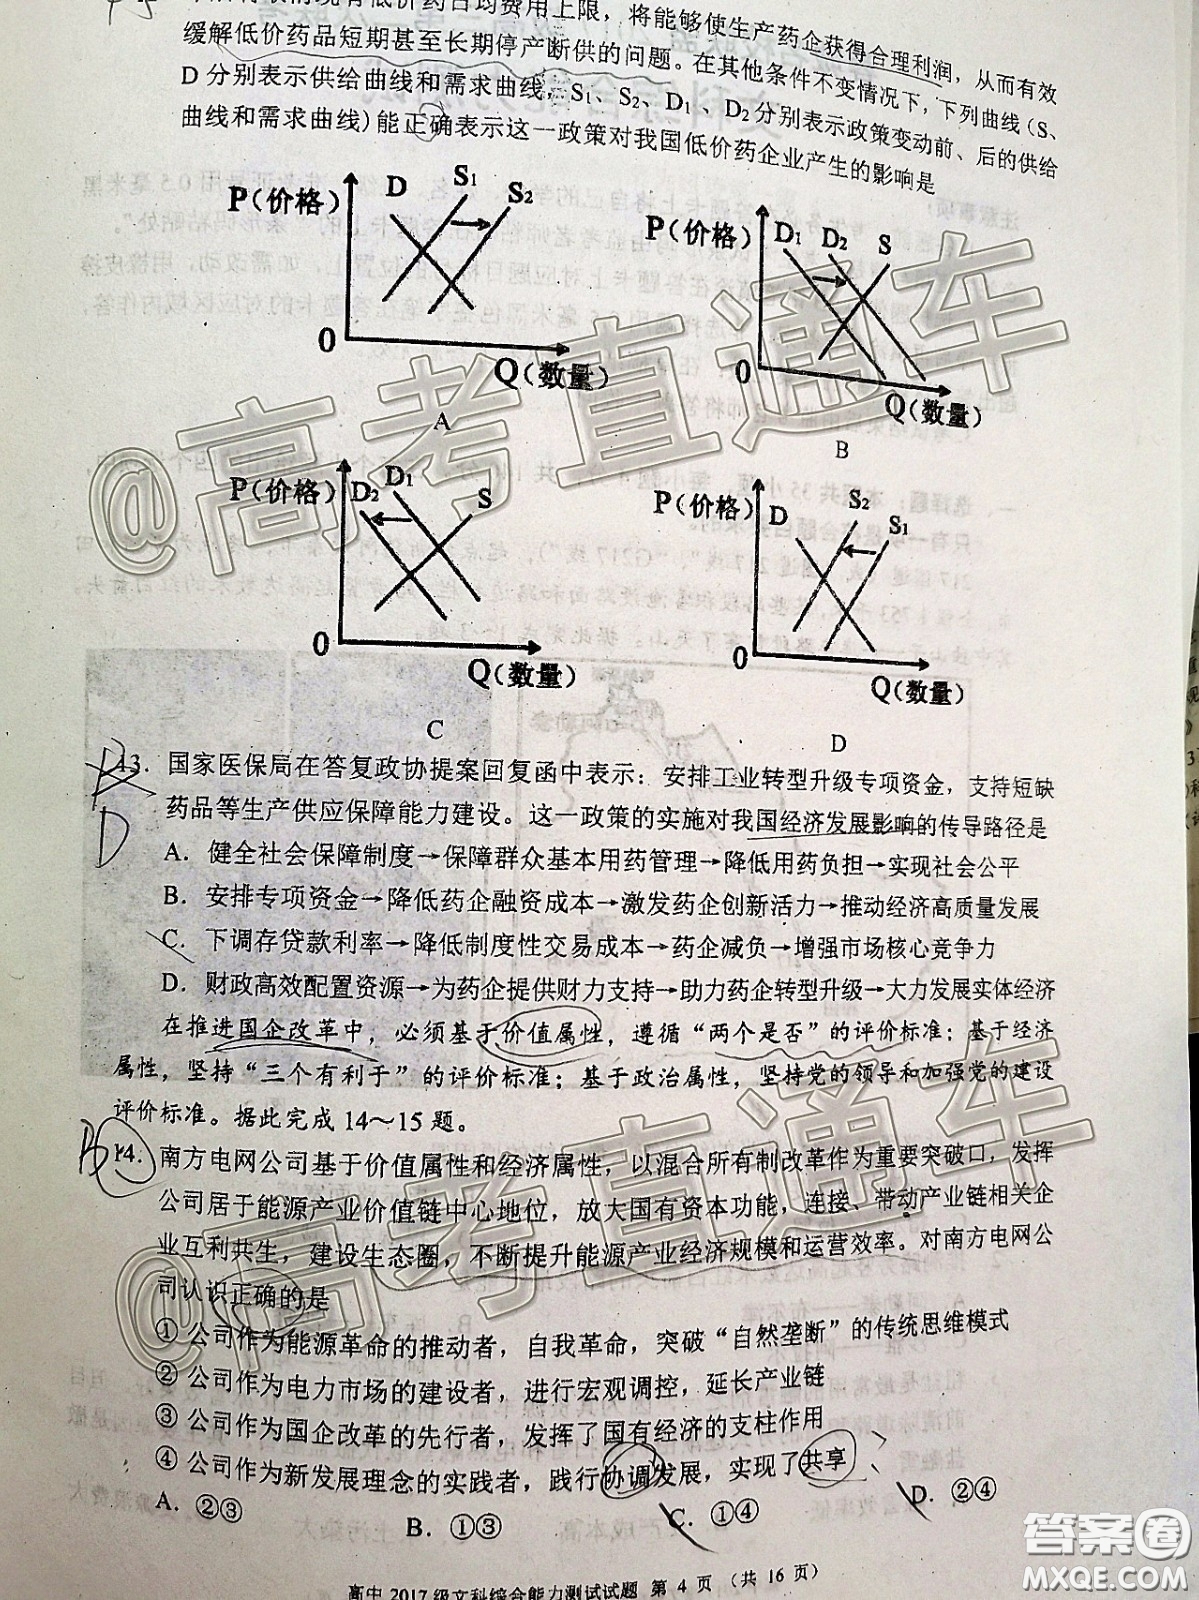 缓解低价药品短期甚至长期停产断供的问题。在其他条件不变情况下，下列曲线（S、
D 分别表示供给曲线和需求曲线，S₁、S₂、D₁、D₂分别表示政策变动前、后的供给
曲线和需求曲线）能正确表示这一政策对我国低价药企业产生的影响是
P(价格) D S₁ S₂
0 Q(数量)
A
P(价格) D₁ D₂ S
0 Q(数量)
B
P(价格) D₂ D₁ S
0 Q(数量)
C
P(价格) D S₂ S₁
0 Q(数量)
D
13. 国家医保局在答复政协提案回复函中表示：安排工业转型升级专项资金，支持短缺
药品等生产供应保障能力建设。这一政策的实施对我国经济发展影响的传导路径是
A．健全社会保障制度→保障群众基本用药管理→降低用药负担→实现社会公平
B．安排专项资金→降低药企融资成本→激发药企创新活力→推动经济高质量发展
C．下调存贷款利率→降低制度性交易成本→药企减负→增强市场核心竞争力
D．财政高效配置资源→为药企提供财力支持→助力药企转型升级→大力发展实体经济
D
在推进国企改革中，必须基于价值属性，遵循“两个是否”的评价标准；基于经济
属性，坚持“三个有利于”的评价标准；基于政治属性，坚持党的领导和加强党的建设
评价标准。据此完成 14～15 题。
B
14. 南方电网公司基于价值属性和经济属性，以混合所有制改革作为重要突破口，发挥
公司居于能源产业价值链中心地位，放大国有资本功能，连接、带动产业链相关企
业互利共生，建设生态圈，不断提升能源产业经济规模和运营效率。对南方电网公
司认识正确的是
① 公司作为能源革命的推动者，自我革命，突破“自然垄断”的传统思维模式
② 公司作为电力市场的建设者，进行宏观调控，延长产业链
③ 公司作为国企改革的先行者，发挥了国有经济的支柱作用
④ 公司作为新发展理念的实践者，践行协调发展，实现了共享
A．②③ B．①③ C．①④ D．②④
高中 2017 级文科综合能力测试试题 第 4 页 （共 16 页）
@高考直通车
@高考直通车
@高考直通车
答案圈
MXQE.COM